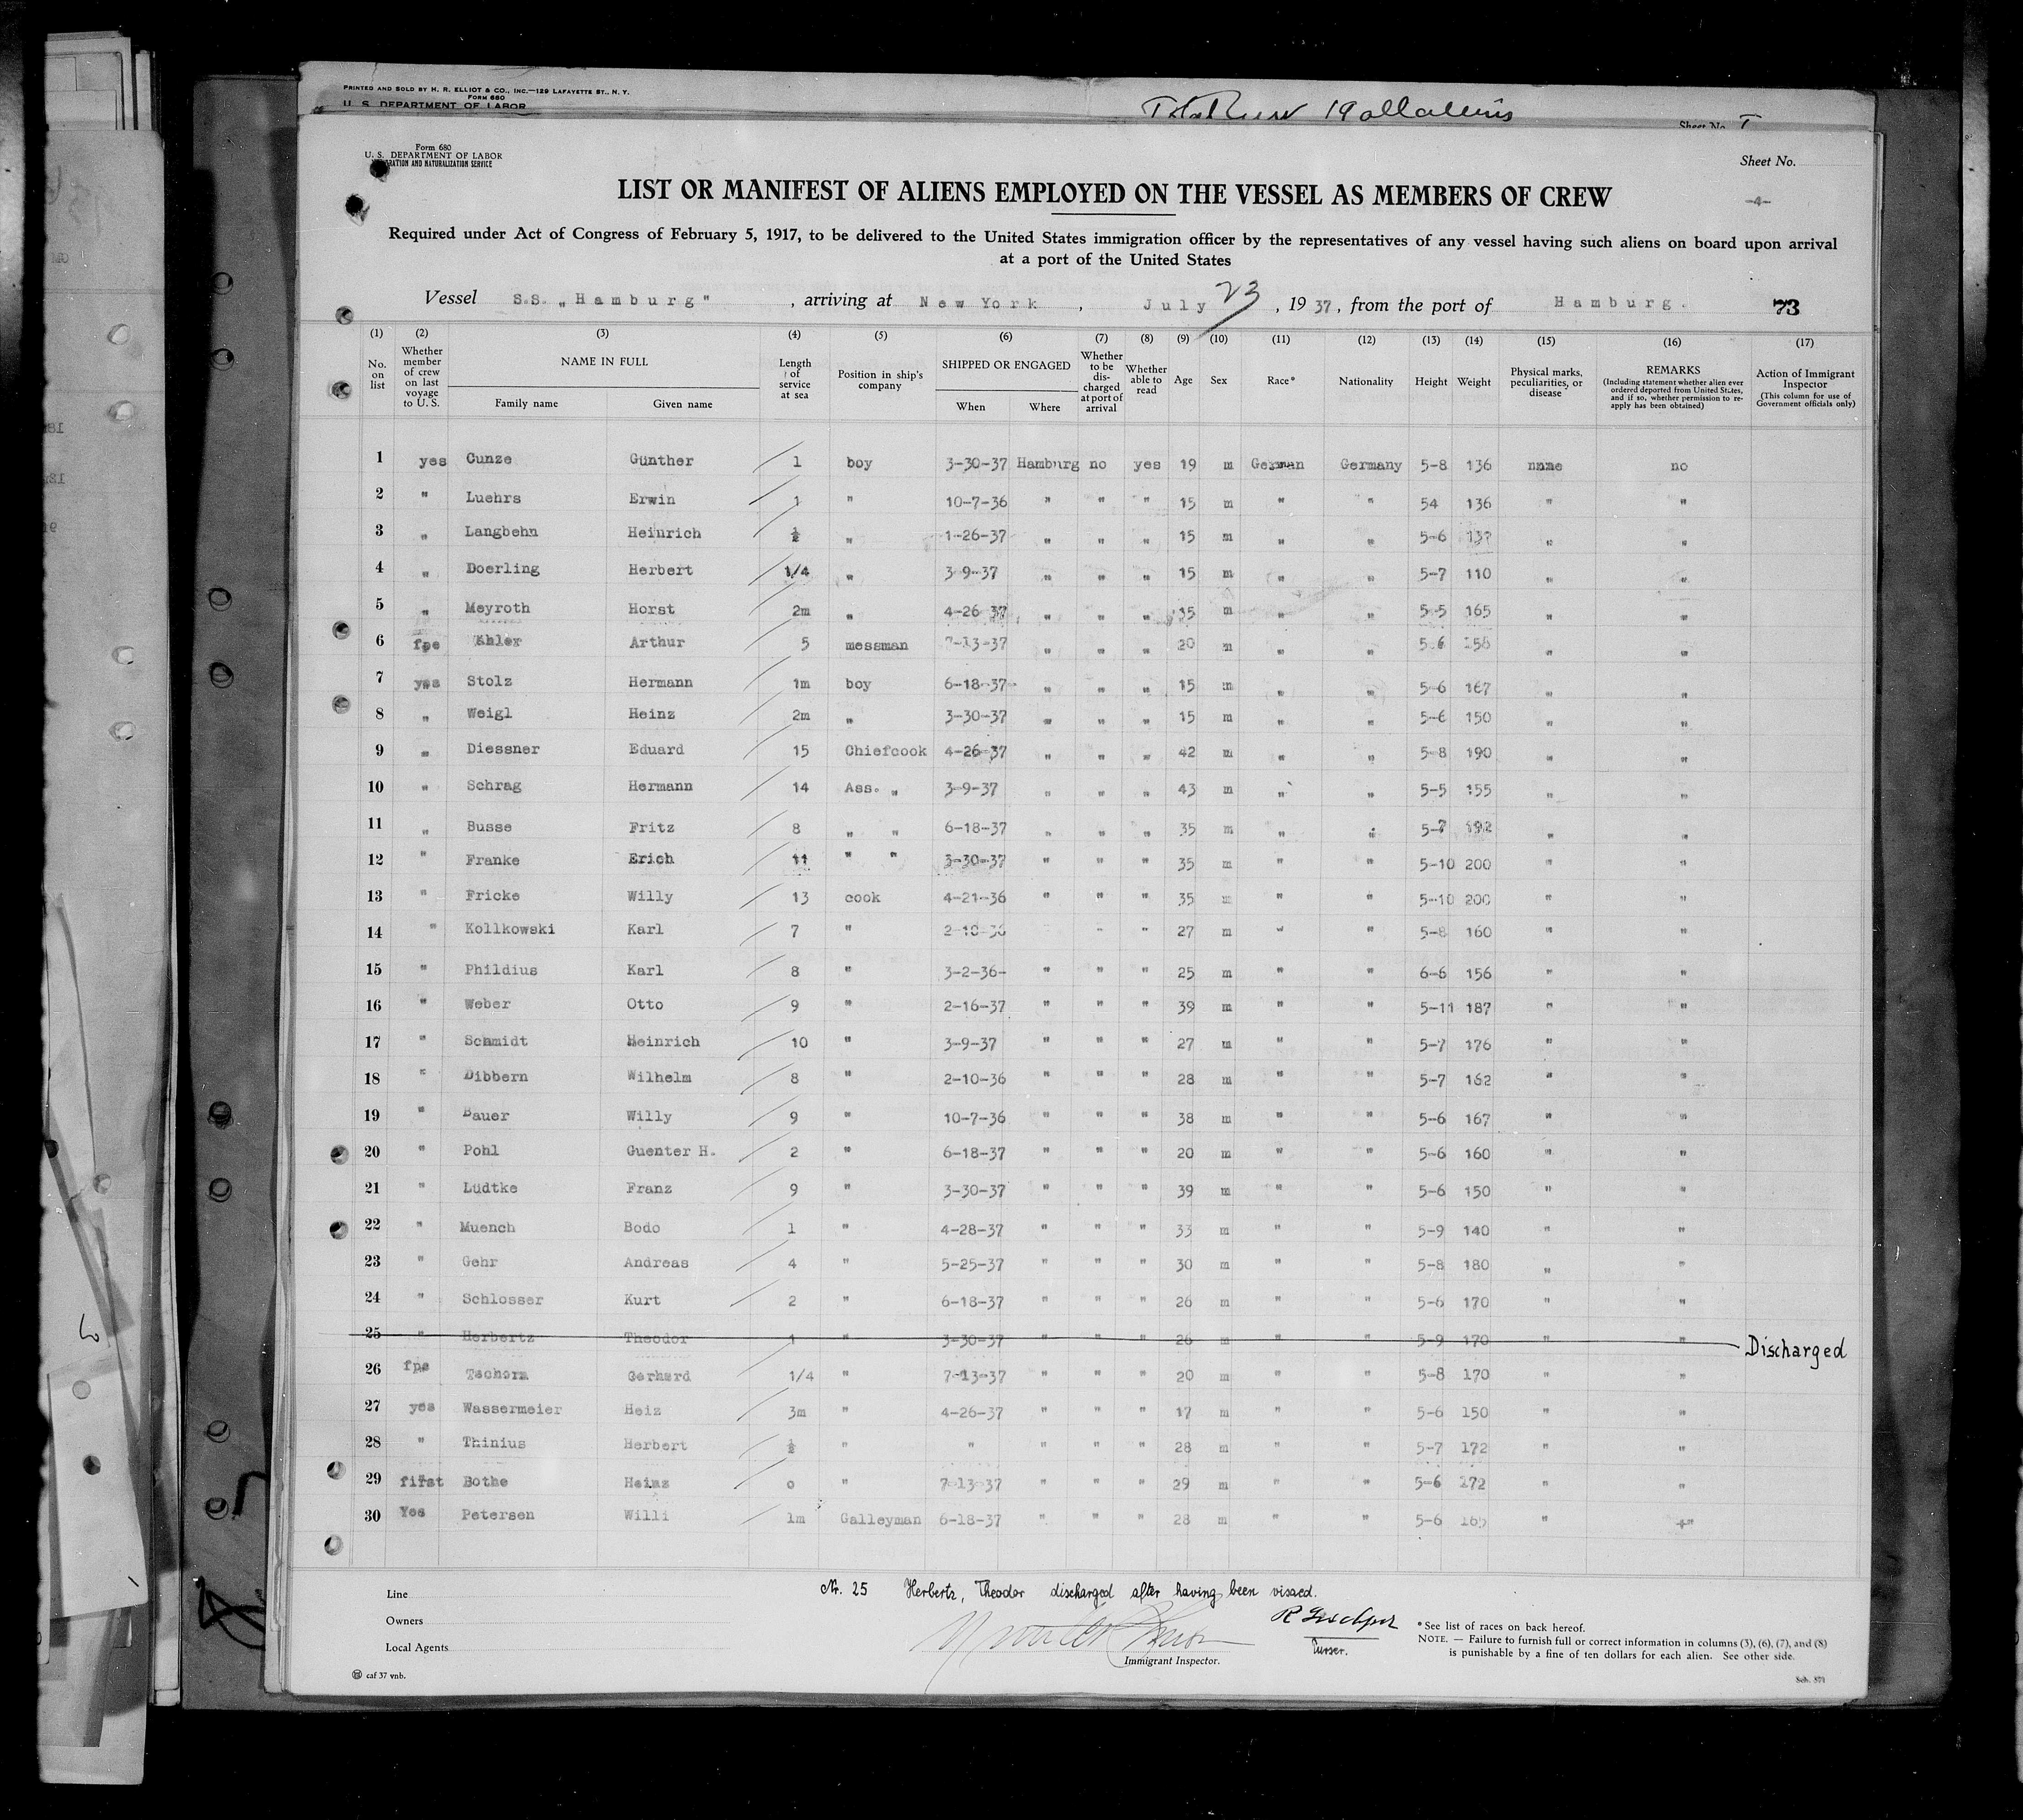 PRINTED AND SOLD BY H. R. ELLIOT & CO., INC.—129 LAFAYETTE ST., N. Y.
FORM 680
U. S. DEPARTMENT OF LABOR
Sheet No.
Form 680
U. S. DEPARTMENT OF LABOR
IMMIGRATION AND NATURALIZATION SERVICE
Sheet No.
-4-
LIST OR MANIFEST OF ALIENS EMPLOYED ON THE VESSEL AS MEMBERS OF CREW
Required under Act of Congress of February 5, 1917, to be delivered to the United States immigration officer by the representatives of any vessel having such aliens on board upon arrival
at a port of the United States
Vessel S.S. „Hamburg" , arriving at New York , July 23 , 1937, from the port of Hamburg. 73
(1) (2) (3) (4) (5) (6) (7) (8) (9) (10) (11) (12) (13) (14) (15) (16) (17)
No. on list
Whether member of crew on last voyage to U. S.
NAME IN FULL
Family name
Given name
Length of service at sea
Position in ship's company
SHIPPED OR ENGAGED
When
Where
Whether to be discharged at port of arrival
Whether able to read
Age
Sex
Race*
Nationality
Height
Weight
Physical marks, peculiarities, or disease
REMARKS
(Including statement whether alien ever ordered deported from United States, and if so, whether permission to re-apply has been obtained)
Action of Immigrant Inspector
(This column for use of Government officials only)
1 yes Cunze Günther 1 boy 3-30-37 Hamburg no yes 19 m German Germany 5-8 136 none no
2 " Luehrs Erwin 1 " 10-7-36 " " " 15 m " " 54 136 " "
3 „ Langbehn Heinrich ½ „ 1-26-37 „ „ „ 15 m „ „ 5-6 132 „ „
4 „ Doerling Herbert 1/4 „ 3-9-37 „ „ „ 15 m „ „ 5-7 110 „ „
5 „ Meyroth Horst 2m „ 4-26 37 „ „ „ 15 m „ „ 5-5 165 „ „
6 fpe Ehler Arthur 5 messman 7-13-37 „ „ „ 20 m „ „ 5-6 158 „ „
7 yes Stolz Hermann 1m boy 6-18-37- „ „ „ 15 m „ „ 5-6 167 „ „
8 „ Weigl Heinz 2m „ 3-30-37 „ „ „ 15 m „ „ 5-6 150 „ „
9 „ Diessner Eduard 15 Chiefcook 4-26-37 „ „ „ 42 m „ „ 5-8 190 „ „
10 „ Schrag Hermann 14 Ass. „ 3-9-37 „ „ „ 43 m „ „ 5-5 155 „ „
11 „ Busse Fritz 8 „ „ 6-18-37 „ „ „ 35 m „ „ 5-7 192 „ „
12 " Franke Erich 11 " " 3-30-37 " " " 35 m " " 5-10 200 " "
13 " Fricke Willy 13 cook 4-21-36 " " " 35 m " " 5-10 200 " "
14 " Kollkowski Karl 7 " 2-10-36 " " 27 m " " 5-8 160 " "
15 " Phildius Karl 8 " 3-2-36- " " " 25 m " " 6-6 156 " "
16 " Weber Otto 9 " 2-16-37 " " " 39 m " " 5-11 187 " "
17 " Schmidt Heinrich 10 " 3-9-37 " " " 27 m " " 5-7 176 " "
18 " Dibbern Wilhelm 8 " 2-10-36 " " " 28 m " " 5-7 162 " "
19 " Bauer Willy 9 " 10-7-36 " " " 38 m " " 5-6 167 " "
20 " Pohl Guenter H. 2 " 6-18-37 " " " 20 m " " 5-6 160 " "
21 " Lüdtke Franz 9 " 3-30-37 " " " 39 m " " 5-6 150 " "
22 " Muench Bodo 1 " 4-28-37 " " " 33 m " " 5-9 140 " "
23 " Gehr Andreas 4 " 5-25-37 " " " 30 m " " 5-8 180 „ "
24 " Schlosser Kurt 2 " 6-18-37 " " " 26 m " " 5-6 170 " "
25 " Herbertz Theodor 1 " 3-30-37 " " " 26 m " " 5-9 170 " " Discharged
26 fpe Tschorn Gerhard 1/4 " 7-13-37 " " " 20 m " " 5-8 170 " "
27 yes Wassermeier Heiz 3m " 4-26-37 " " " 17 m " " 5-6 150 " "
28 " Thinius Herbert ½ " " " " " 28 m " " 5-7 172 " "
29 first Bothe Heinz 0 " 7-13-37 " " " 29 m " " 5-6 172 " "
30 Yes Petersen Willi 1m Galleyman 6-18-37 " " " 28 m " " 5-6 165 " "
Line
Owners
Local Agents
caf 37 vnb.
Nr. 25 Herbertz, Theodor discharged after having been visaed.
Purser.
Immigrant Inspector.
*See list of races on back hereof.
NOTE. — Failure to furnish full or correct information in columns (3), (6), (7), and (8)
is punishable by a fine of ten dollars for each alien. See other side.
Sch. 571